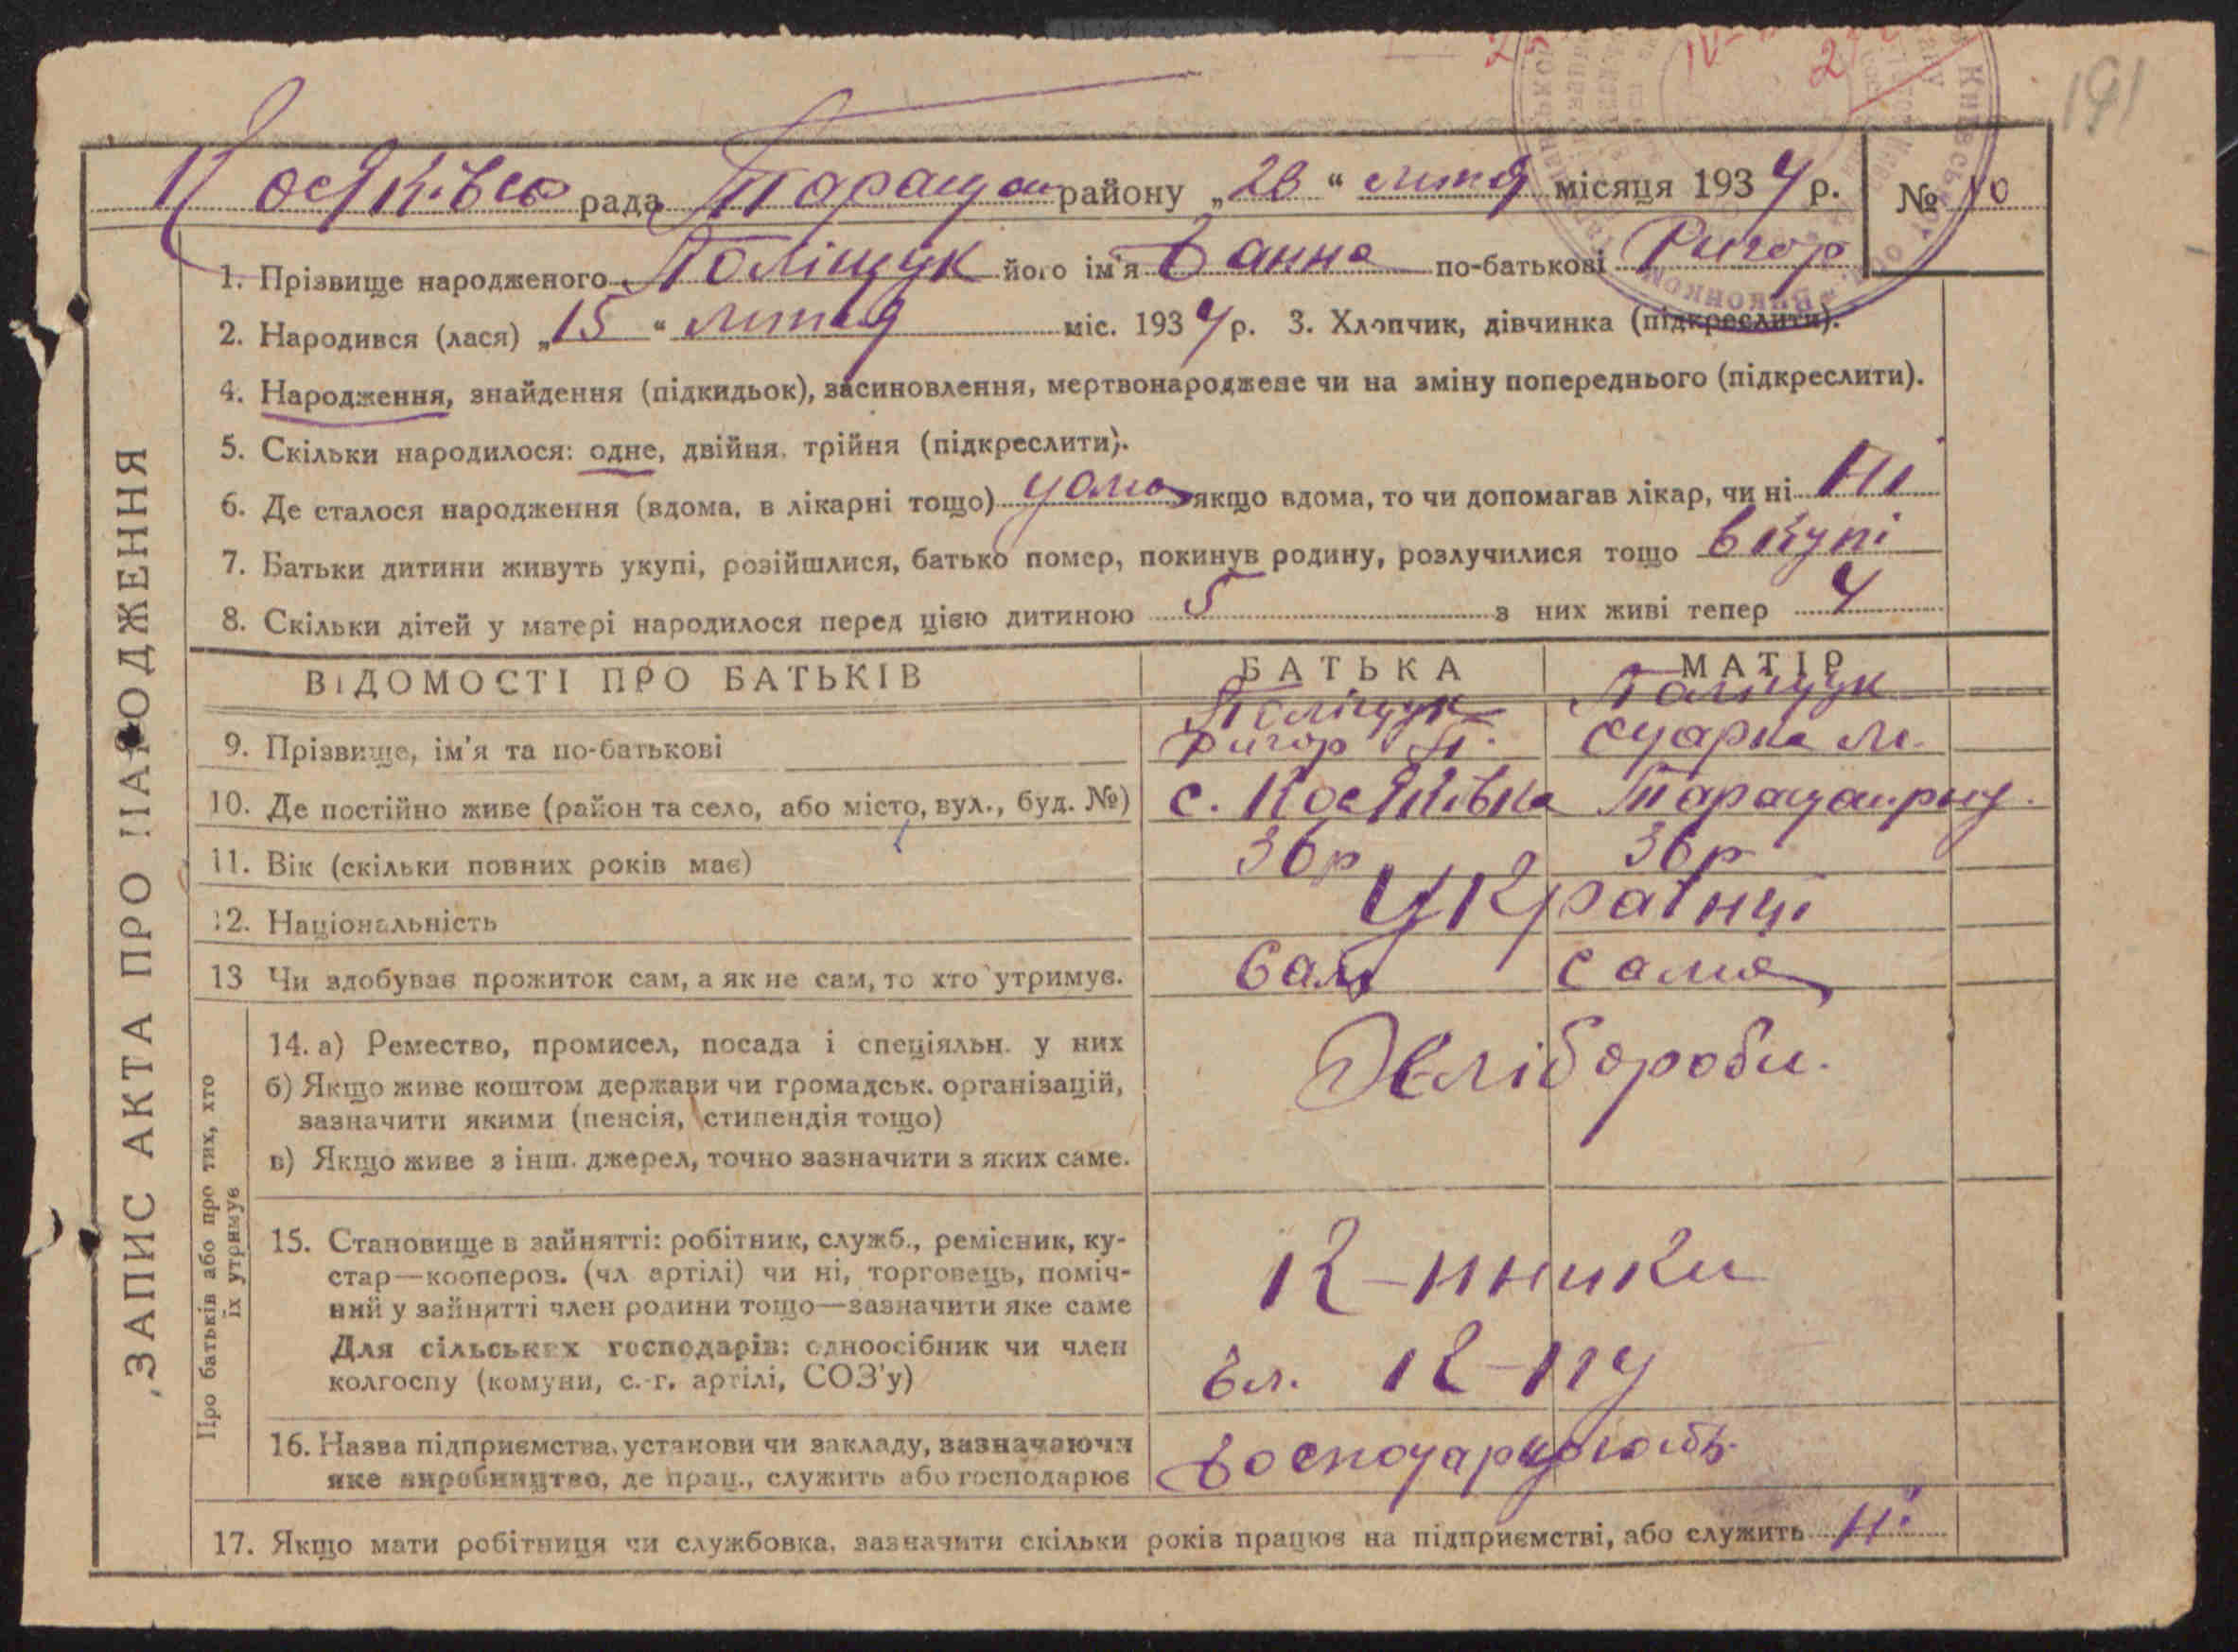 191
Косяківсь рада Таращан району „28“ лютя місяця 1934 р. № 10
1. Прізвище народженого Поліщук його ім'я Ганна по-батькові Ригор
2. Народився (лася) „15“ лютця міс. 1934 р. 3. Хлопчик, дівчинка (підкреслити).
4. Народження, знайдення (підкидьок), засиновлення, мертвонароджене чи на зміну попереднього (підкреслити).
5. Скільки народилося: одне, двійня, трійня (підкреслити).
6. Де сталося народження (вдома, в лікарні тощо) дома якщо вдома, то чи допомагав лікар, чи ні Ні
7. Батьки дитини живуть укупі, розійшлися, батько помер, покинув родину, розлучилися тощо вкупі
8. Скільки дітей у матері народилося перед цією дитиною 5 з них живі тепер 4
ВІДОМОСТІ ПРО БАТЬКІВ БАТЬКА МАТІР
9. Прізвище, ім'я та по-батькові Поліщук Ригор П. Поліщук Одарка М.
10. Де постійно живе (район та село, або місто, вул., буд. №) с. Косяківка Таращан. рну.
11. Вік (скільки повних років має) 36р 36р
12. Національність Українці
13 Чи здобуває прожиток сам, а як не сам, то хто утримує. Сам сама
14. а) Ремество, промисел, посада і спеціяльн. у них Хлібороби.
б) Якщо живе коштом держави чи громадськ. організацій,
зазначити якими (пенсія, стипендія тощо)
в) Якщо живе з інш. джерел, точно зазначити з яких саме.
15. Становище в зайнятті: робітник, служб., ремісник, ку-
стар—коопероз. (чл артілі) чи ні, торговець, поміч- К-нники
ний у зайнятті член родини тощо—зазначити яке саме
Для сільських господарів: одноосібник чи член
колгоспу (комуни, с.-г. артілі, СОЗ'у) вл. К-пу
16. Назва підприємства, установи чи закладу, зазначаючи
яке виробництво, де прац., служить або господарює Господарюють
17. Якщо мати робітниця чи службовка, зазначити скільки років працює на підприємстві, або служить Ні
ЗАПИС АКТА ПРО НАРОДЖЕННЯ
Про батьків або про тих, хто
їх утримує